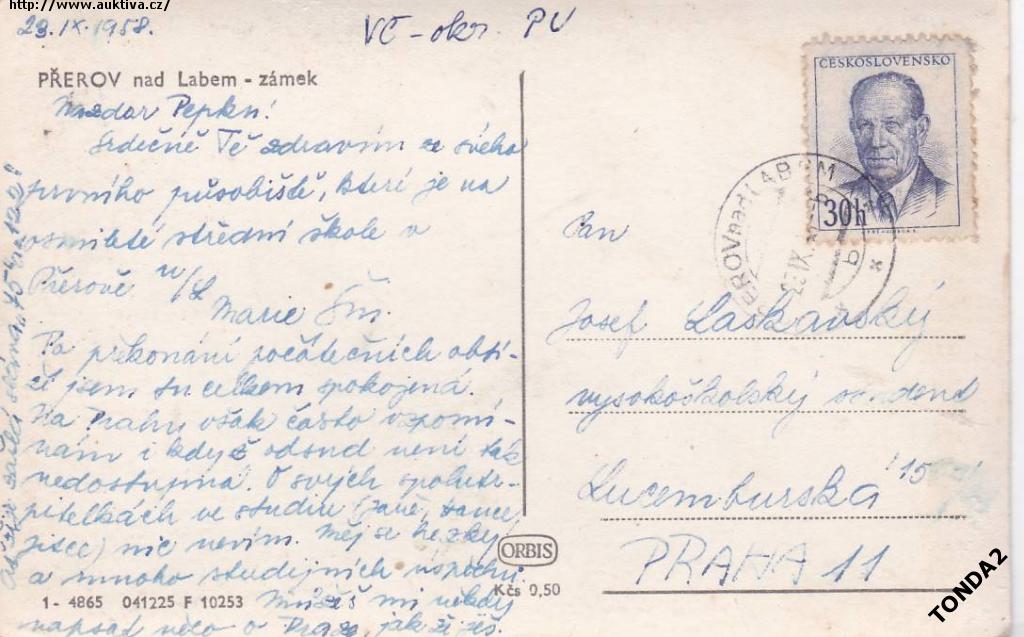 http://www.auktiva.cz/
23.IX.1958.
VČ-okr. PV
PŘEROV nad Labem - zámek
ČESKOSLOVENSKO
30h
Nazdar Pepku!
Srdečně Tě zdravím ze svého
prvního působiště, které je na
osmileté střední škole v
Přerově n/L
Marie Šm.
Po překonání počátečních obtí-
ží jsem tu celkem spokojená.
Na Prahu však často vzpomí-
nám i když odsud není tak
nedostupná. O svých spolutr-
pitelkách ve studiu
nic nevím. Měj se hezky
a mnoho studijních úspěchů.
Můžeš mi někdy
napsat něco o Praze, jak ži ješ.
Pan
Josef Laskavský
vysokoškolský student
Lucemburská 15
PRAHA 11
ORBIS
Kčs 0,50
1- 4865 041225 F 10253
TONDA2